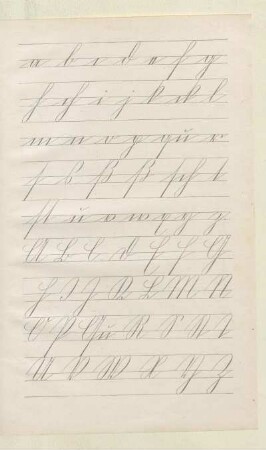 a b c d e f g
h ch i j k ck l
m n o p q qu r
s ß sch t
st u v w x y z
A B C D E F G
H I J K L M N
O P Qu R S St T
U V W X Y Z